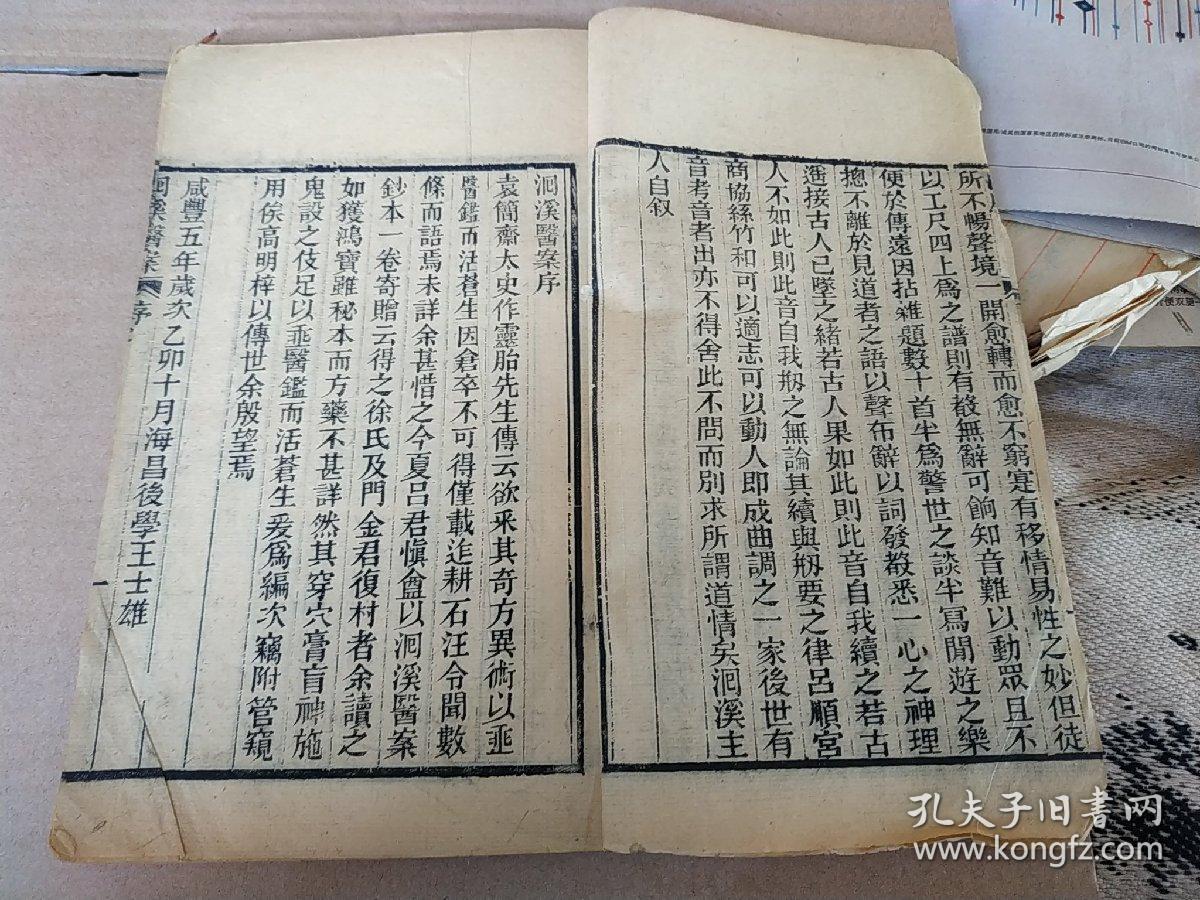 所不暢聲境一開愈轉而愈不窮寔有移情易性之妙但徒
以工尺四上爲之譜則有聲無辭可餉知音難以動眾且不
便於傳遠因拈雜題數十首半爲警世之談半寫閒遊之樂
摠不離於見道者之語以聲布辭以詞發教悉一心之神理
遥接古人已墜之緒若古人果如此則此音自我續之若古
人不如此則此音自我剏之無論其續與剏要之律呂順宮
商協絲竹和可以適志可以動人即成曲調之一家後世有
音考音者出亦不得舍此不問而別求所謂道情矣洄溪主
人自叙
洄溪醫案序
袁簡齋太史作靈胎先生傳云欲采其奇方異術以垂
醫鑑而活蒼生因倉卒不可得僅載迮耕石汪令聞數
條而語焉未詳余甚惜之今夏呂君愼盦以洄溪醫案
鈔本一卷寄贈云得之徐氏及門金君復村者余讀之
如獲鴻寶雖秘本而方藥不甚詳然其穿穴膏肓神施
鬼設之伎足以垂醫鑑而活蒼生爰爲編次竊附管窺
用俟高明梓以傳世余殷望焉
咸豐五年歲次乙卯十月海昌後學王士雄
洄溪醫案 序
孔夫子旧书网
www.kongfz.com